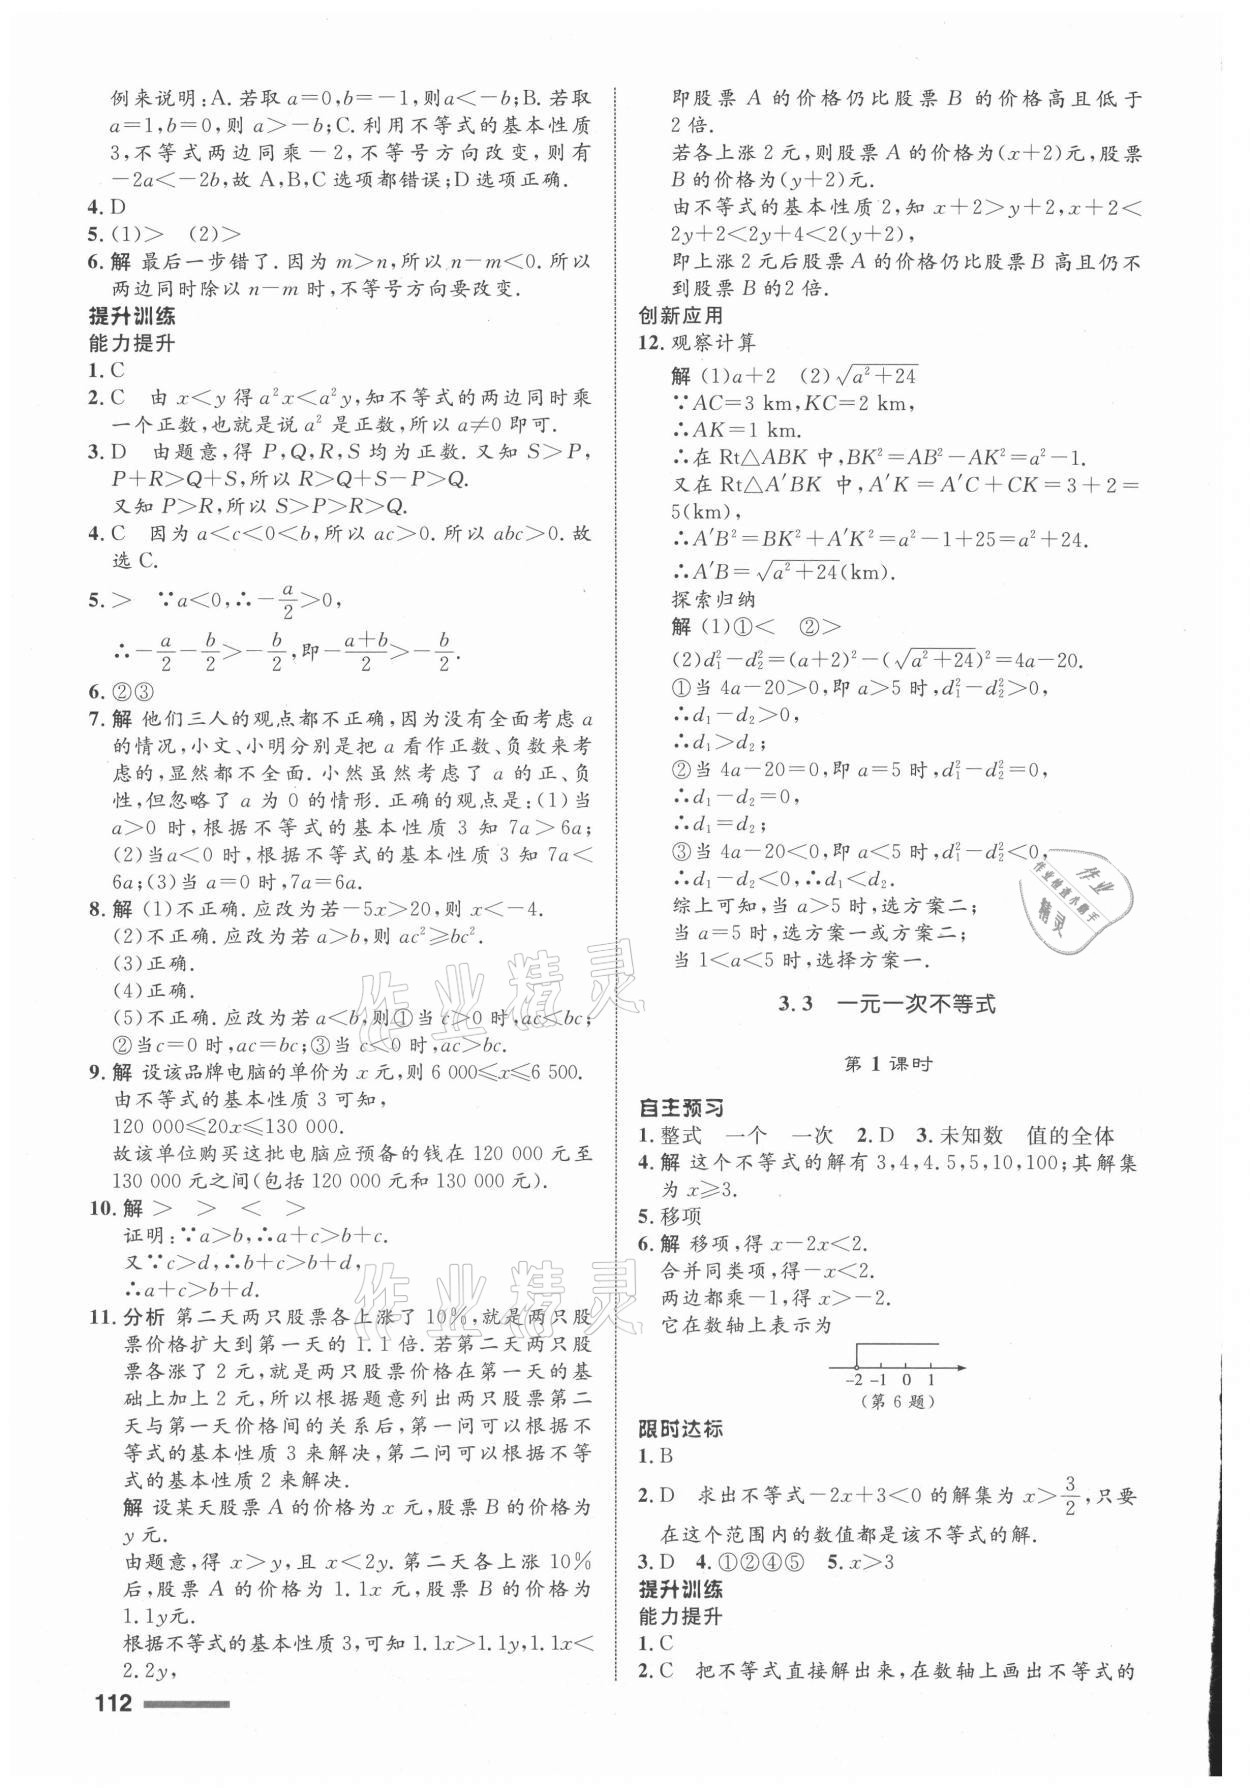 例来说明:A.若取a=0,b=-1,则a<-b;B.若取
a=1,b=0,则a>-b;C.利用不等式的基本性质
3,不等式两边同乘-2,不等号方向改变,则有
-2a<-2b,故A,B,C选项都错误;D选项正确.
4.D
5.(1)> (2)>
6.解 最后一步错了.因为m>n,所以n-m<0.所以
两边同时除以n-m时,不等号方向要改变.
提升训练
能力提升
1.C
2.C 由x<y得a²x<a²y,知不等式的两边同时乘
一个正数,也就是说a²是正数,所以a≠0即可.
3.D 由题意,得P,Q,R,S均为正数.又知S>P,
P+R>Q+S,所以R>Q+S-P>Q.
又知P>R,所以S>P>R>Q.
4.C 因为a<c<0<b,所以ac>0.所以abc>0.故
选C.
5.> ∵a<0,∴-a/2>0,
∴-a/2-b/2>-b/2,即-(a+b)/2>-b/2.
6.②③
7.解 他们三人的观点都不正确,因为没有全面考虑a
的情况,小文、小明分别是把a看作正数、负数来考
虑的,显然都不全面.小然虽然考虑了a的正、负
性,但忽略了a为0的情形.正确的观点是:(1)当
a>0时,根据不等式的基本性质3知7a>6a;
(2)当a<0时,根据不等式的基本性质3知7a<
6a;(3)当a=0时,7a=6a.
8.解 (1)不正确.应改为若-5x>20,则x<-4.
(2)不正确.应改为若a>b,则ac²≥bc².
(3)正确.
(4)正确.
(5)不正确.应改为若a<b,则①当c>0时,ac<bc;
②当c=0时,ac=bc;③当c<0时,ac>bc.
9.解 设该品牌电脑的单价为x元,则6 000≤x≤6 500.
由不等式的基本性质3可知,
120 000≤20x≤130 000.
故该单位购买这批电脑应预备的钱在120 000元至
130 000元之间(包括120 000元和130 000元).
10.解 > > < >
证明:∵a>b,∴a+c>b+c.
又∵c>d,∴b+c>b+d,
∴a+c>b+d.
11.分析 第二天两只股票各上涨了10%,就是两只股
票价格扩大到第一天的1.1倍.若第二天两只股
票各涨了2元,就是两只股票价格在第一天的基
础上加上2元,所以根据题意列出两只股票第二
天与第一天价格间的关系后,第一问可以根据不
等式的基本性质3来解决,第二问可以根据不等
式的基本性质2来解决.
解 设某天股票A的价格为x元,股票B的价格为
y元.
由题意,得x>y,且x<2y.第二天各上涨10%
后,股票A的价格为1.1x元,股票B的价格为
1.1y元.
根据不等式的基本性质3,可知1.1x>1.1y,1.1x<
2.2y,
112
即股票A的价格仍比股票B的价格高且低于
2倍.
若各上涨2元,则股票A的价格为(x+2)元,股票
B的价格为(y+2)元.
由不等式的基本性质2,知x+2>y+2,x+2<
2y+2<2y+4<2(y+2),
即上涨2元后股票A的价格仍比股票B高且仍不
到股票B的2倍.
创新应用
12.观察计算
解 (1)a+2 (2)√(a²+24)
∵AC=3 km,KC=2 km,
∴AK=1 km.
∴在Rt△ABK中,BK²=AB²-AK²=a²-1.
又在Rt△A′BK中,A′K=A′C+CK=3+2=
5(km),
∴A′B²=BK²+A′K²=a²-1+25=a²+24.
∴A′B=√(a²+24)(km).
探索归纳
解 (1)①< ②>
(2)d₁²-d₂²=(a+2)²-(√(a²+24))²=4a-20.
①当4a-20>0,即a>5时,d₁²-d₂²>0,
∴d₁-d₂>0,
∴d₁>d₂;
②当4a-20=0,即a=5时,d₁²-d₂²=0,
∴d₁-d₂=0,
∴d₁=d₂;
③当4a-20<0,即a<5时,d₁²-d₂²<0,
∴d₁-d₂<0,∴d₁<d₂.
综上可知,当a>5时,选方案二;
当a=5时,选方案一或方案二;
当1<a<5时,选择方案一.
3.3 一元一次不等式
第1课时
自主预习
1.整式 一个 一次 2.D 3.未知数 值的全体
4.解 这个不等式的解有3,4,4.5,5,10,100;其解集
为x≥3.
5.移项
6.解 移项,得x-2x<2.
合并同类项,得-x<2.
两边都乘-1,得x>-2.
它在数轴上表示为
-2 -1 0 1
(第6题)
限时达标
1.B
2.D 求出不等式-2x+3<0的解集为x>3/2,只要
在这个范围内的数值都是该不等式的解.
3.D 4.①②④⑤ 5.x>3
提升训练
能力提升
1.C
2.C 把不等式直接解出来,在数轴上画出不等式的
作业精灵
作业精灵
作业
作业检查小助手
精灵